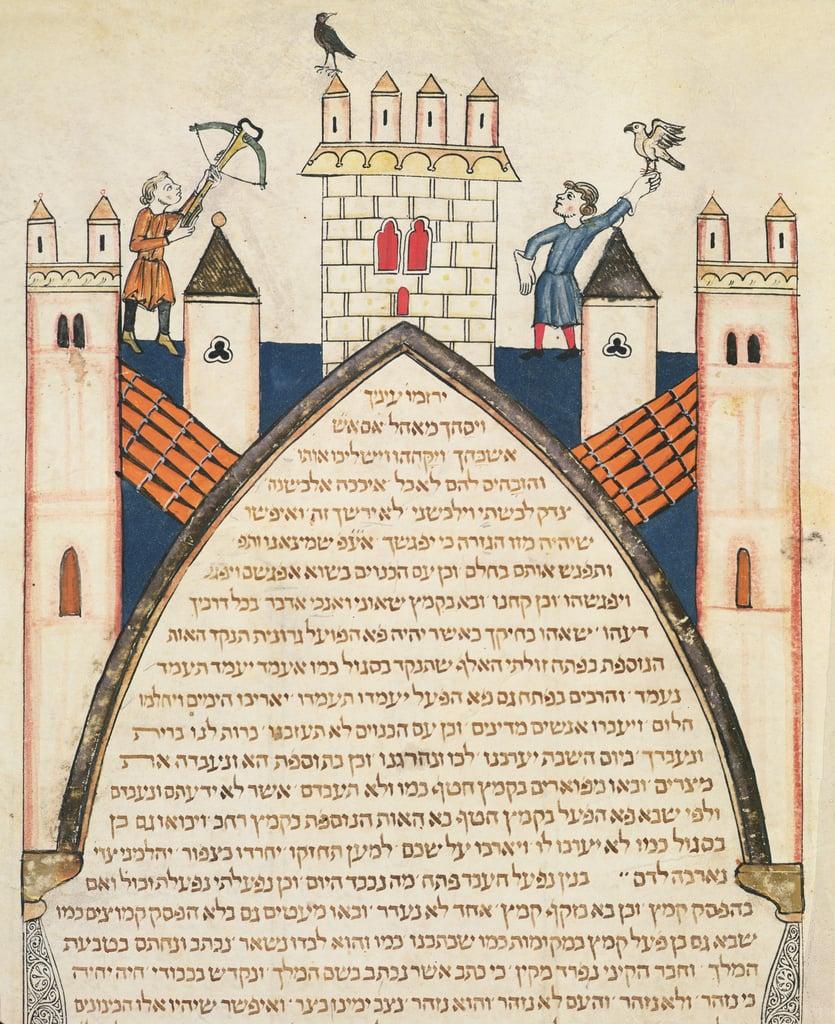 ירזמו עיניך
ויסחך מאהל
אשבהך ויקחהו וישליכו אותו
והזבחים להם לאכל איככה אלבשנה
צדק לבשתי וילבשני לא ירשך זה ואיפשר
שיהיה מזו הגזרה כי יפגשך אעפ שמצאנו ותפ
ותפגש אותם בחלם וכן עם הכנוים בשוא אפגשם ויפג
ויפגשהו וכן קחנו ובא בקמץ ישאוני ואנכי אדבר בכל דרכיך
דיעהו ישאהו בחיקך כאשר יהיה פא הפועל גרונית תנקד האות
הנוספת בפתח זולתי האלף שתנקד בסגול כמו אעמד יעמד תעמד
נעמד והרבים בפתח גם פא הפעל יעמדו תעמדו יאריכו הימים ויחלמו
חלום ויעברו אנשים מדינים וכן עם הכנוים לא תעזבנו כרות לנו ברית
ונעבדך ביום השבת יערכנו לכו ונהרגנו וכן בתוספת הא ונעבדה את
מצרים ובאו מפוארים בקמץ חטף כמו ולא תעבדם אשר לא ידעתם ונעבדם
ולפי שבא פא הפעל בקמץ חטף בא האות הנוספת בקמץ רחב ויבואו גם כן
בסגול כמו לא יערכו לו ויארכו על שכם למען תחזקו יחרדו כצפור יהלמני צדי
נארבה לדם בנין נפעל העבר פתח מה נכבד היום וכן נפעלתי נפעלת וכול ואם
בהפסק קמץ וכן בא בזקף קמץ אחד לא נעדר ובאו מעטים גם בלא הפסק קמוצים כמו
שבא גם כן פעל קמץ במקומות כמו שכתבנו כמו והוא לבדו נשאר נכתב ונחתם בטבעת
המלך וחבר הקיני נפרד מקין כי כתב אשר נכתב בשם המלך ונקדש בכבודי היה יהיה
כי נזהר ולא נזהר והעם לא נזהר והוא נזהר נצב ימינו כצר ואיפשר שיהיו אלו הבינונים